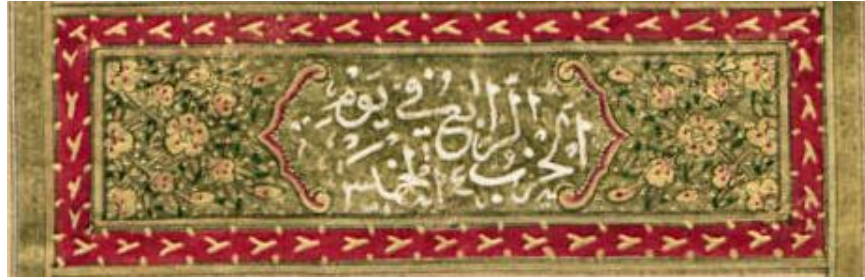 الحِزْبُ الرَّابِعُ فِي يَوْمِ الخميس